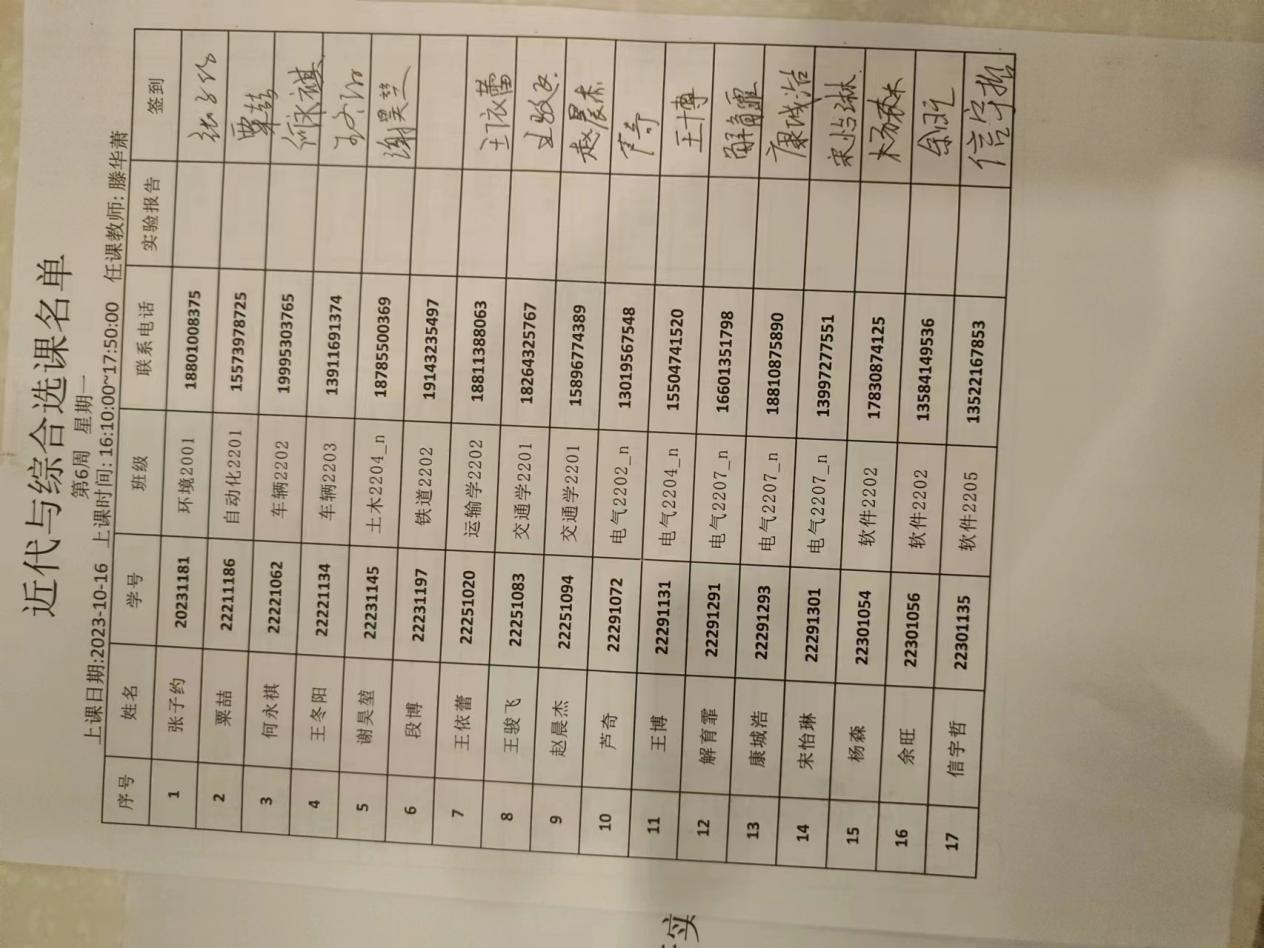 近代与综合选课名单
第6周 星期一
上课日期:2023-10-16 上课时间: 16:10:00~17:50:00 任课教师: 滕华萧
序号 姓名 学号 班级 联系电话 实验报告 签到
1 张子约 20231181 环境2001 18801008375 张子约
2 粟喆 22211186 自动化2201 15573978725 粟喆
3 何永祺 22221062 车辆2202 19995303765 何永祺
4 王冬阳 22221134 车辆2203 13911691374
5 谢昊堃 22231145 土木2204_n 18785500369 谢昊堃
6 段博 22231197 铁道2202 19143235497
7 王依蕾 22251020 运输学2202 18811388063 王依蕾
8 王骏飞 22251083 交通学2201 18264325767 王骏飞
9 赵晨杰 22251094 交通学2201 15896774389 赵晨杰
10 芦奇 22291072 电气2202_n 13019567548 芦奇
11 王博 22291131 电气2204_n 15504741520 王博
12 解育霏 22291291 电气2207_n 16601351798 解育霏
13 康城浩 22291293 电气2207_n 18810875890 康城浩
14 宋怡琳 22291301 电气2207_n 13997277551 宋怡琳
15 杨森 22301054 软件2202 17830874125 杨森
16 余旺 22301056 软件2202 13584149536 余旺
17 信宇哲 22301135 软件2205 13522167853 信宇哲
实